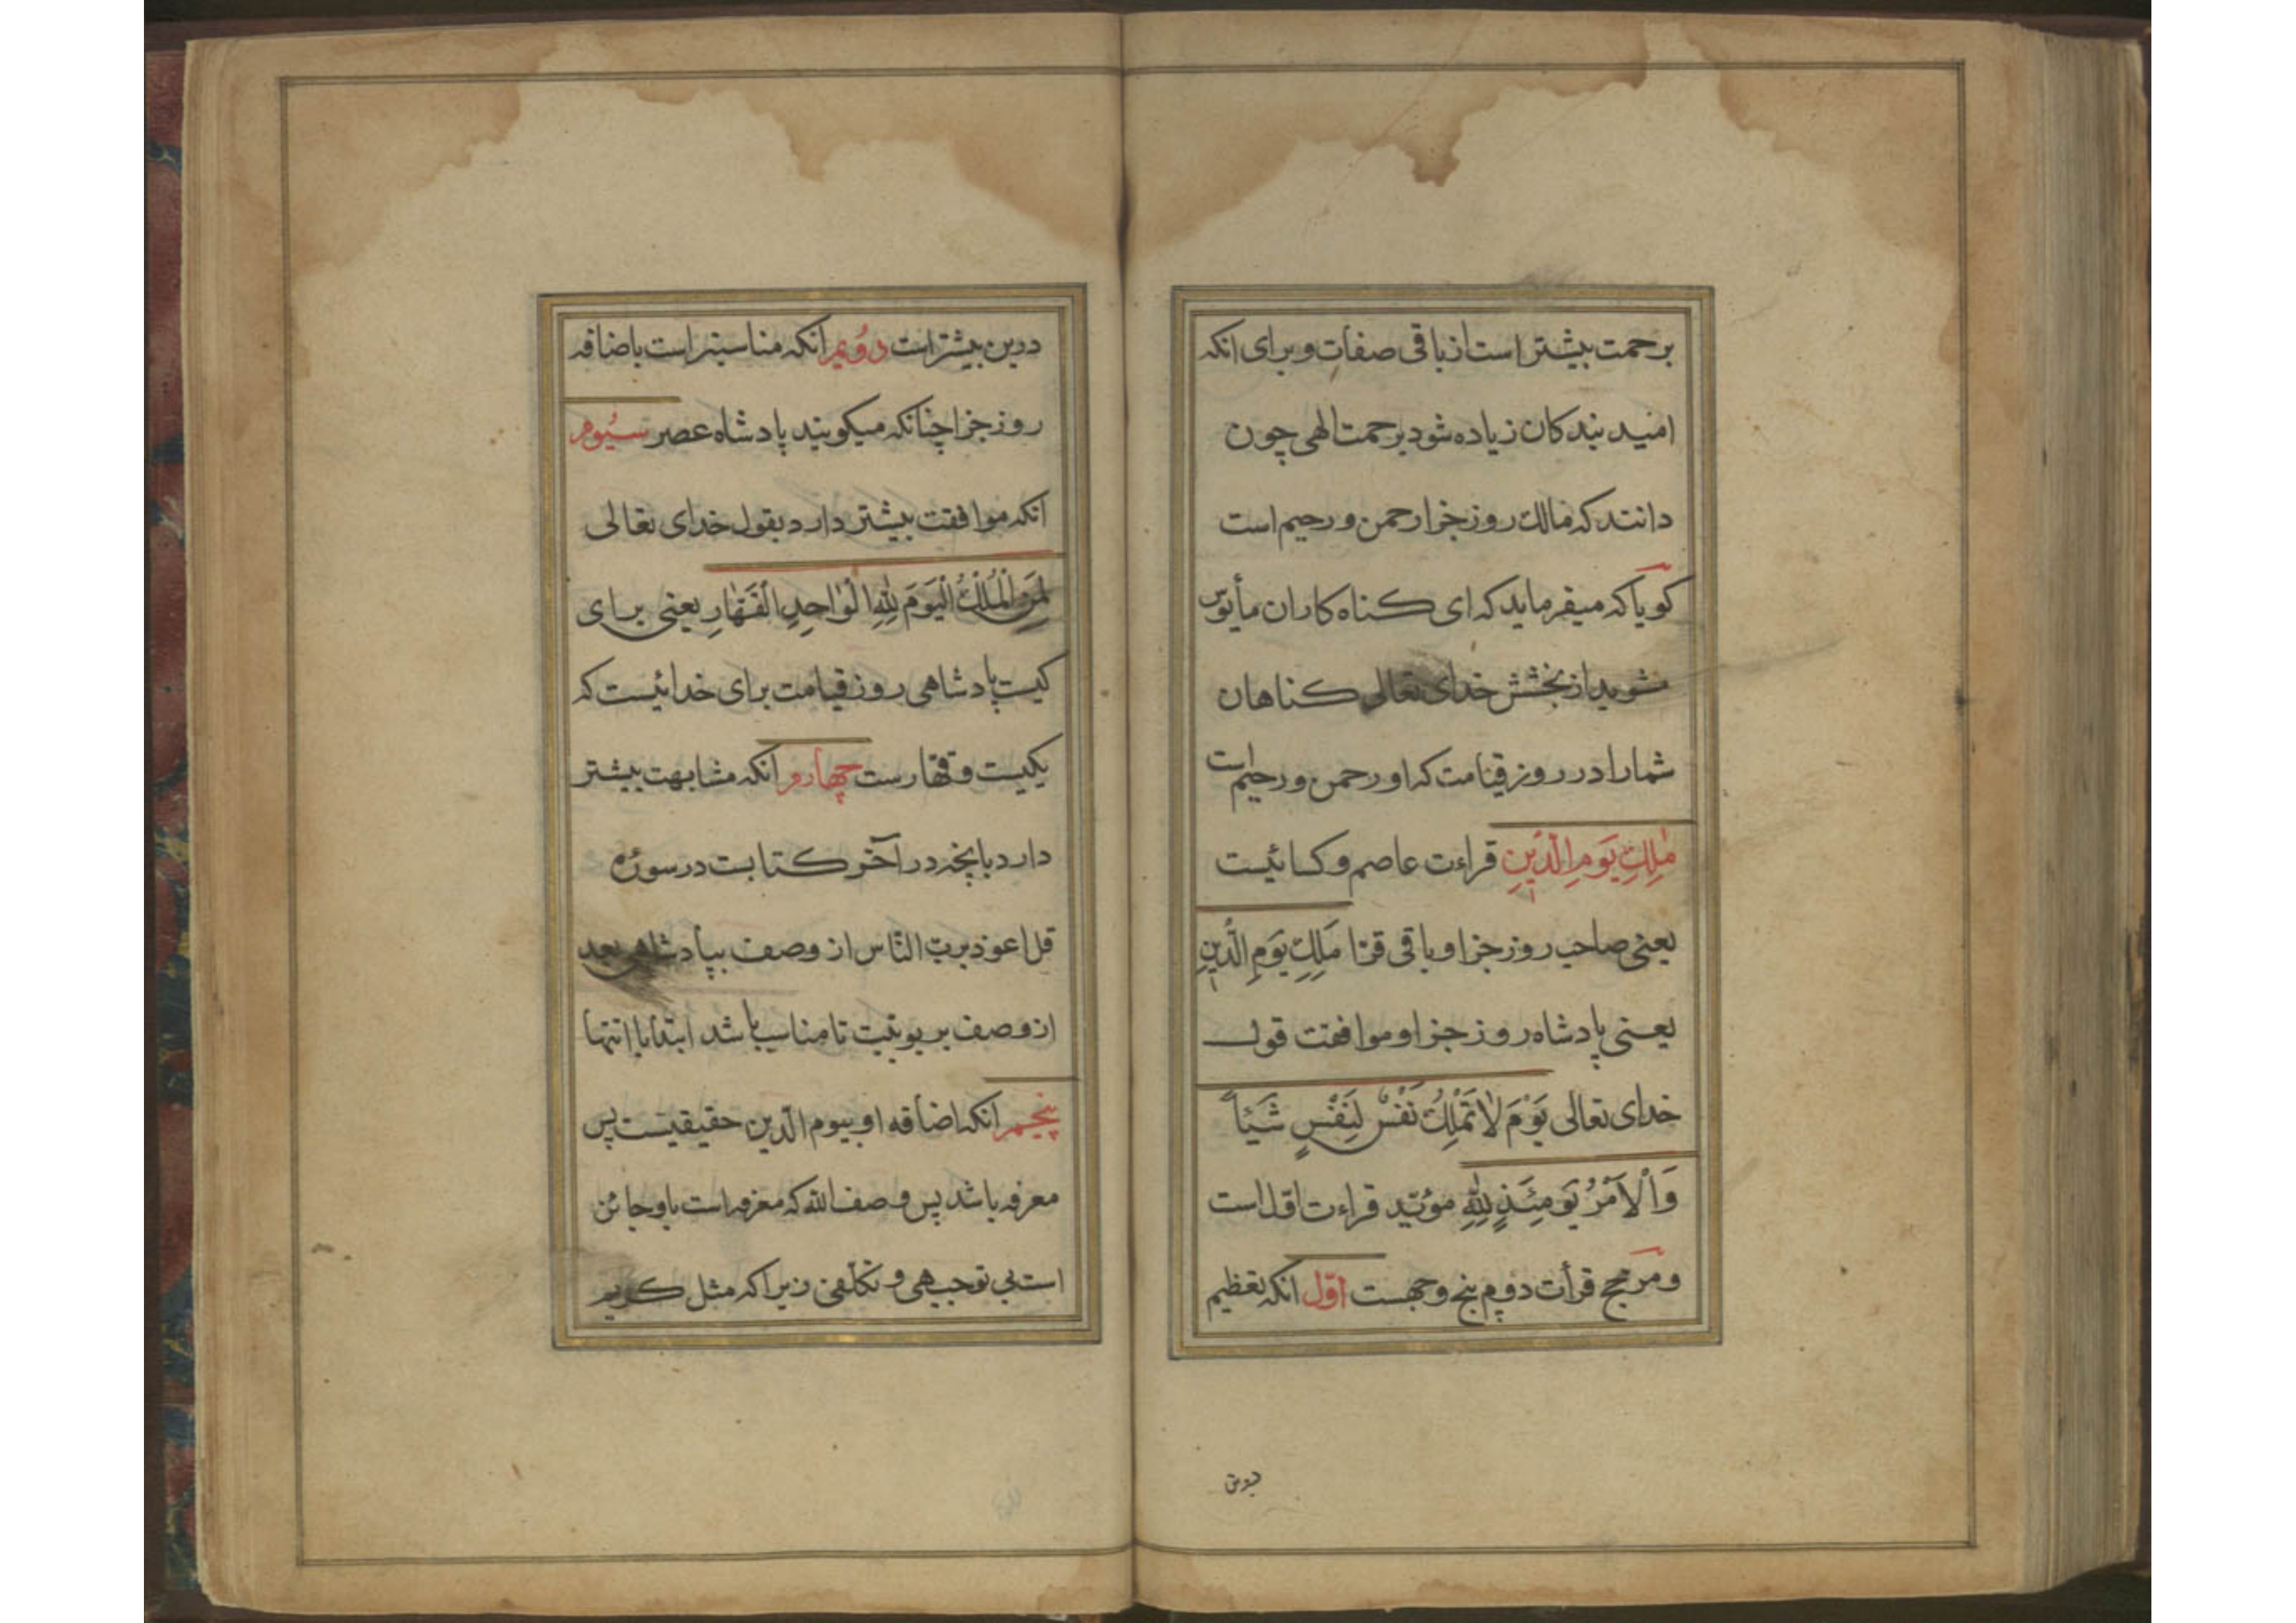 برحمت بیشتر است از باقی صفات و برای انکه
امید بندکان زیاده شود برحمت الهی چون
دانند که مالک روز جزا رحمن و رحیم است
کویا که میفرماید که ای کناه کاران مأیوس
مشوید از بخشش خدای تعالی کناهان
شما را در روز قیامت که او رحمن و رحیم است
مٰلِكِ يَوْمِ الدِّينِ قراءت عاصم و کسائیست
یعنی صاحب روز جزا و باقی قرّا مَلِكِ يَوْمِ الدِّينِ
یعنی پادشاه روز جزا و موافقت قول
خدای تعالی يَوْمَ لَا تَمْلِكُ نَفْسٌ لِنَفْسٍ شَيْئاً
وَالْاَمْرُ يَوْمَئِذٍ لِلّٰهِ مؤیّد قراءت اوّل است
و مرجح قرأت دویم پنج وجهست اوّل انکه تعظیم
درین بیشتر است دویم انکه مناسبتر است باضافه
روز جزا چنانکه میکویند پادشاه عصر سیوم
انکه موافقت بیشتر دارد بقول خدای تعالی
لِمَنِ الْمُلْكُ الْيَوْمَ لِلّٰهِ الْوٰاحِدِ الْقَهّٰارِ یعنی برای
کیست پادشاهی روز قیامت برای خدائیست که
یکیست و قهّارست چهارم انکه مشابهت بیشتر
دارد بانچه در آخر کتابست در سورهٔ
قل اعوذ بربّ النّاس از وصف بپادشاهی بعد
از وصف بربوبیّت تا مناسب باشد ابتدا با انتها
پنجم انکه اضافه او بیوم الدّین حقیقیست پس
معرفه باشد پس وصف اللّه که معرفه است باو جائز
است بی توجیهی و تکلّفی زیرا که مثل کریم